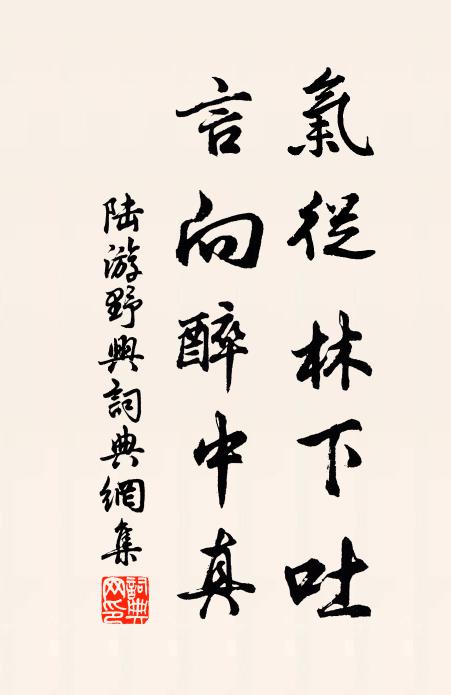 氣從林下吐
言向醉中真
陸游野興詞典網集
詞典
网印